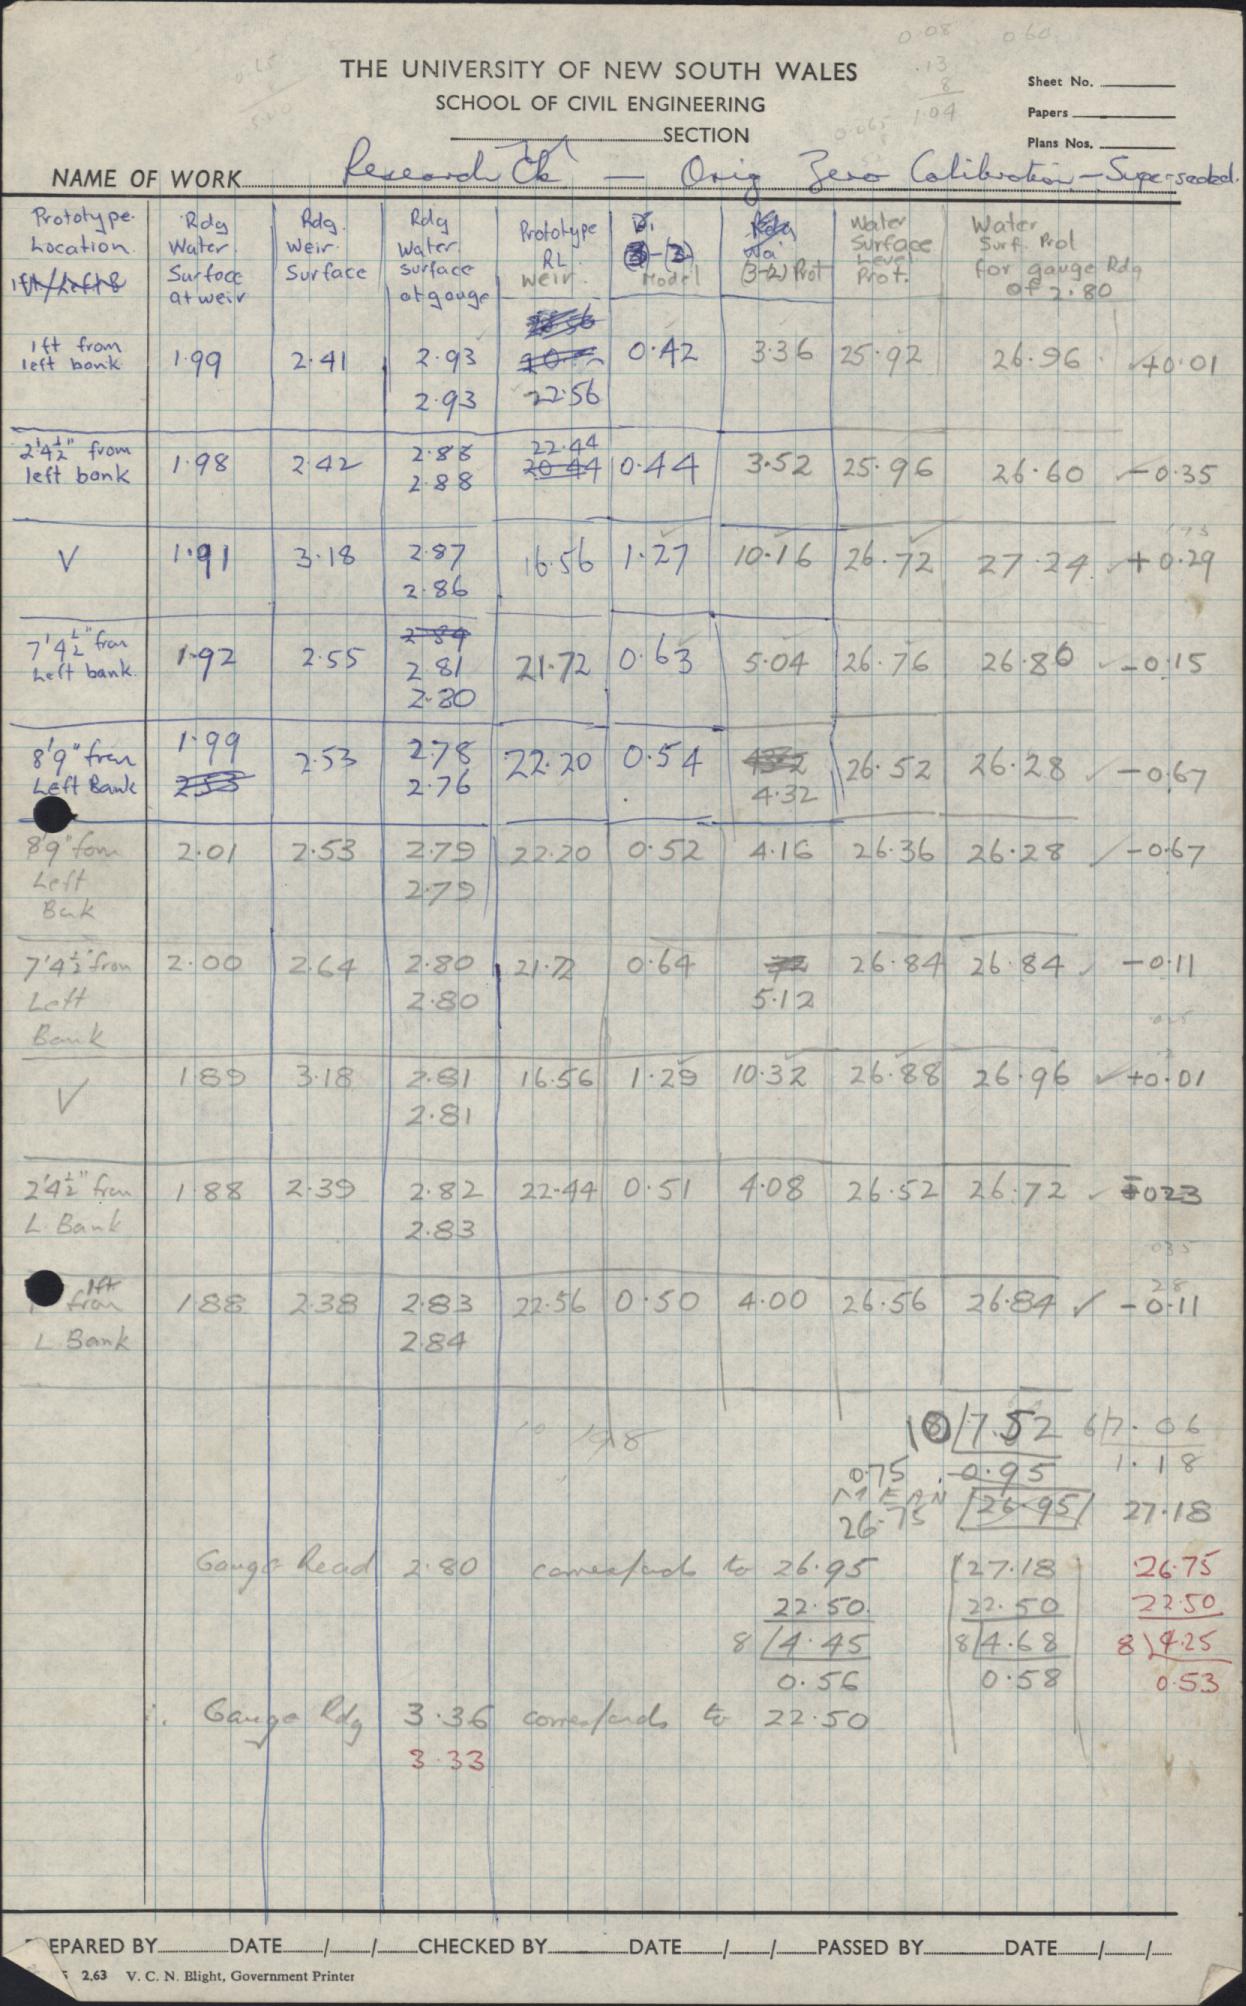 THE UNIVERSITY OF NEW SOUTH WALES
SCHOOL OF CIVIL ENGINEERING
SECTION
Sheet No.
Papers
Plans Nos.
0.08 0.60
.13
8
1.04
0.065
NAME OF WORK Research Ck — Orig Zero Calibration — Superseded.
Prototype Location. Rdg Water Surface at weir Rdg. Weir. Surface Rdg Water. surface at gauge Prototype RL weir. (3-2) Model (3-2) Prot Water Surface Level Prot. Water Surf. Prot for gauge Rdg of 2.80
1ft from left bank 1.99 2.41 2.93 0.42 3.36 25.92 26.96 +0.01
2.93 22.56
2'4½" from left bank 1.98 2.42 2.88 22.44 20.44 0.44 3.52 25.96 26.60 -0.35
2.88
V 1.91 3.18 2.87 16.56 1.27 10.16 26.72 27.24 +0.29
2.86
7'4½" from Left bank. 1.92 2.55 2.84 2.81 21.72 0.63 5.04 26.76 26.86 -0.15
2.80
8'9" from Left Bank 1.99 2.53 2.78 22.20 0.54 26.52 26.28 -0.67
2.53 2.76 4.32
8'9" from Left Bank 2.01 2.53 2.79 22.20 0.52 4.16 26.36 26.28 -0.67
2.79
7'4½" from Left Bank 2.00 2.64 2.80 21.72 0.64 26.84 26.84 -0.11
2.80 5.12
V 1.89 3.18 2.81 16.56 1.29 10.32 26.88 26.96 +0.01
2.81
2'4½" from L. Bank 1.88 2.39 2.82 22.44 0.51 4.08 26.52 26.72 -0.23
2.83
1ft from L Bank 1.88 2.38 2.83 22.56 0.50 4.00 26.56 26.84 -0.11
2.84
10 7.52 6 7.06
0.75 0.95 1.18
MEAN 26.75 26.95 27.18
Gauge Read 2.80 corresponds to 26.95 27.18 26.75
22.50 22.50 22.50
8 4.45 8 4.68 8 4.25
0.56 0.58 0.53
∴ Gauge Rdg 3.36 corresponds to 22.50
3.33
EPARED BY DATE / / CHECKED BY DATE / / PASSED BY DATE / /
2.63 V. C. N. Blight, Government Printer